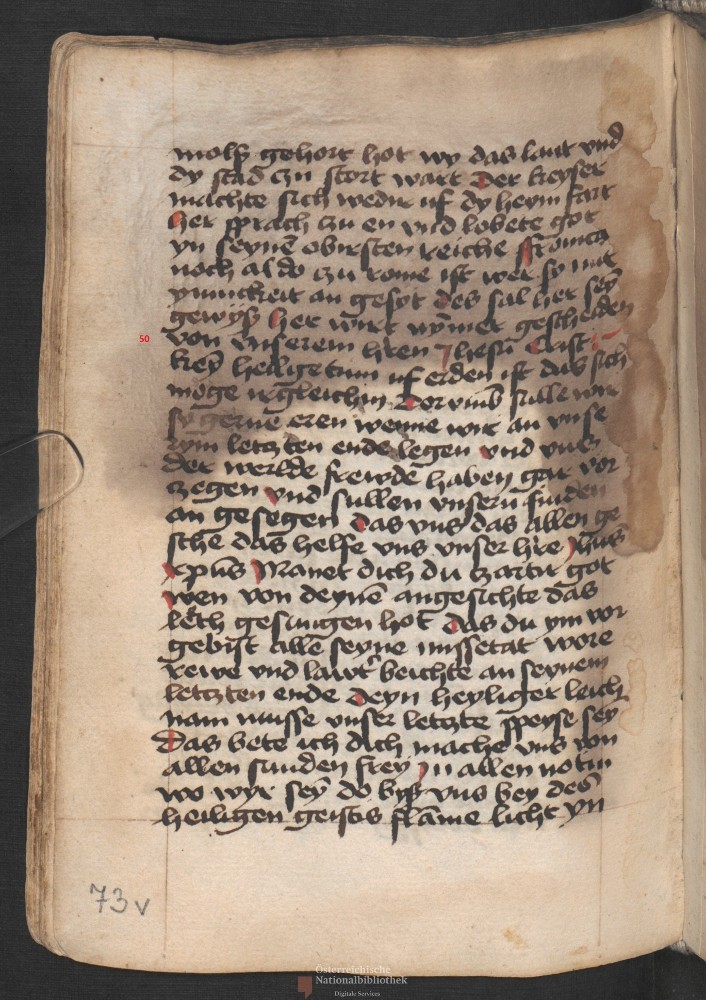 molß gehort hot wy das laut vnd
dy stad czu stort wart Der keyser
machte sich wedir uf dy heym fart
her sprach czu en vnd lobete got
yn seynē obirsten reiche ffronica
noch aldo czu rome ist wer sy mit
ynnickeit an gesyt des sal her seȳ
gewyß her wirt nȳmer gescheiden
50
von vnserem hren Jhesu Crist
keȳ heiligetum uf erden ist das sich
moge irgleichin Dorvmb sulle wir
sy gerne eren wenne wir an vnse
rym letzten ende legen vnd vns
der werlde frewde haben gar vor
czegen vnd sullen vnsern sunden
an gesegen das vns das allen ge
sche das helfe vns vnser hre Jhūs
xpūs Manet dich du czartir got
wen von deynē angesichte das
leth gesungen hot das du ym vor
gebist allē seyne missetat wore
rewe vnd lawt beichte an seynem
letczten ende deyn heyliger leich
nam musse vnser letczte speyse sey
Das bete ich dich mache vns von
allen sunden frey yn allen notin
wo wyr seȳ do byß vns bey des
heiligen geistis flāme licht yn
73v
Österreichische
Nationalbibliothek
Digitale Services